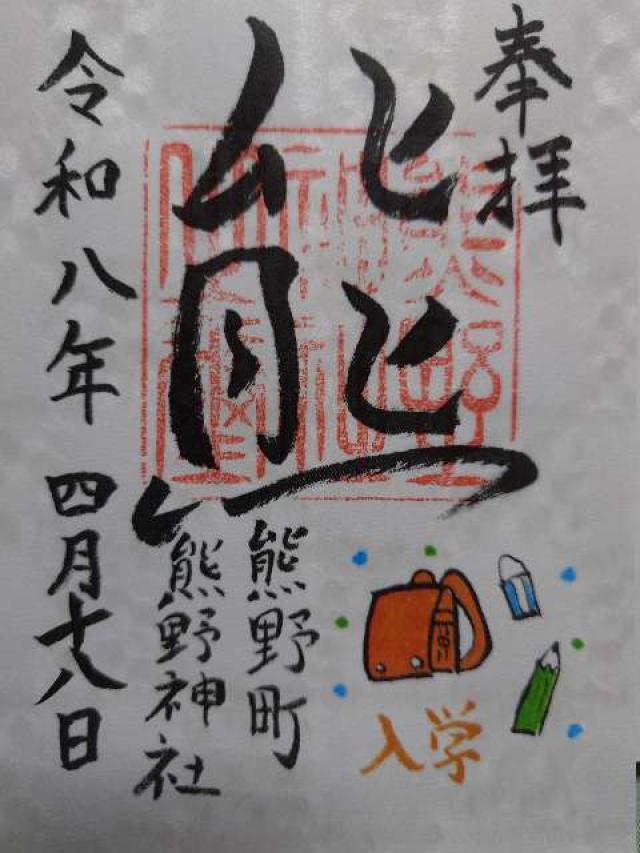 奉拝
熊
熊野町
熊野神社
令和八年四月十八日
入学